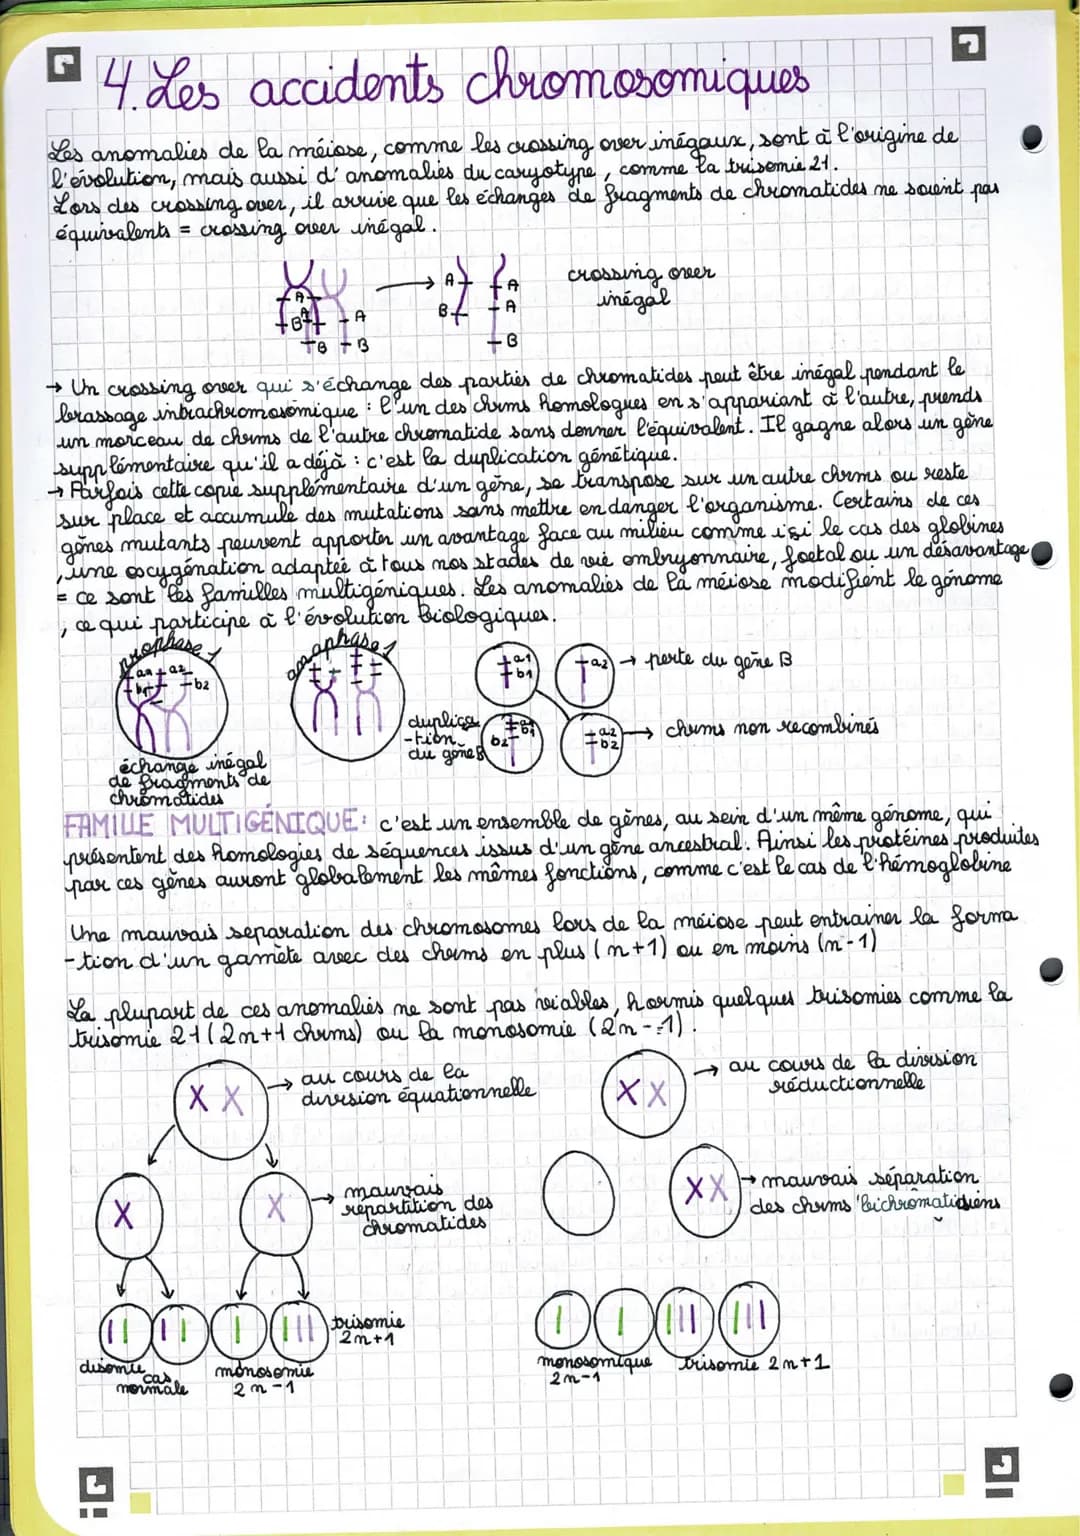 4. Les accidents chromosomiques
Les anomalies de la méiose, comme les crossing over inégaux, sont à l'origine de
l'évolution, mais aussi d'anomalies du caryotype, comme la trisomie 21.
Lors des crossing over, il arrive que les échanges de fragments de chromatides ne soient pas
équivalents = crossing over inégal.
A
B
A
B
A
B
A
B
A
A
B
crossing over
inégal
→ Un crossing over qui s'échange des parties de chromatides peut être inégal pendant le
brassage intrachromosomique : l'un des chrms homologues en s'appariant à l'autre, prends
un morceau de chrms de l'autre chromatide sans donner l'équivalent. Il gagne alors un gène
supplémentaire qu'il a déjà : c'est la duplication génétique.
→ Parfois cette copie supplémentaire d'un gène, se transpose sur un autre chrms ou reste
sur place et accumule des mutations sans mettre en danger l'organisme. Certains de ces
gènes mutants peuvent apporter un avantage face au milieu comme içi le cas des globines
, une oxygénation adaptée à tous nos stades de vie embryonnaire, foetal ou un désavantage
= ce sont les familles multigéniques. Les anomalies de la méiose modifient le génome
, ce qui participe à l'évolution biologiques.
prophase 1
anaphase 1
a1 a2
b1 b2
échange inégal
de fragments de
chromatides
a1
b1
a2 → perte du gène B
duplica
-tion
du gène B
b2
a2
b2 → chrms non recombinés
FAMILLE MULTIGÉNIQUE : c'est un ensemble de gènes, au sein d'un même génome, qui
présentent des homologies de séquences issus d'un gène ancestral. Ainsi les protéines produites
par ces gènes auront globalement les mêmes fonctions, comme c'est le cas de l'hémoglobine
Une mauvais séparation des chromosomes lors de la méiose peut entrainer la forma
-tion d'un gamète avec des chrms en plus (n+1) ou en moins (n-1)
La plupart de ces anomalies ne sont pas viables, hormis quelques trisomies comme la
trisomie 21 (2n+1 chrms) ou la monosomie (2n-1).
→ au cours de la
division équationnelle
→ mauvais
répartition des
chromatides
trisomie
2n+1
disomie
cas
normale
monosomie
2n-1
→ au cours de la division
réductionnelle
→ mauvais séparation
des chrms bichromatidiens
monosomique
2n-1
trisomie 2n+1